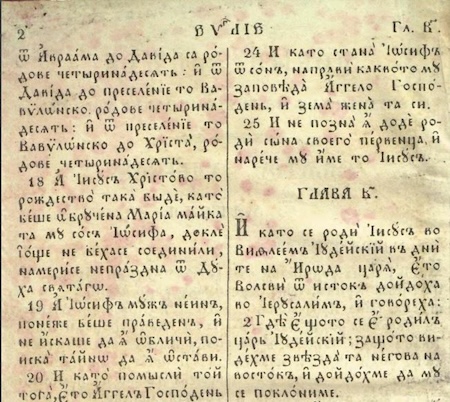 2
ЕѴⷢ҇ЛІЕ
Гл. В҃.
ѿ А҆враа́ма до Даві́да са ро́-
дове четырина́десять: и҆ ѿ
Даві́да до преселе́нїе то Ва-
вѷлѡ́нско. ро́дове четырина́-
десять: и҆ ѿ преселе́нїе то
Вавѷлѡ́нско до Хрїста̀, ро́-
дове четырина́десять.
18 А҆ І҆исꙋ́съ Хрїсто́во то
рождество̀ така̀ быдѐ, като̀
бе́ше ѡ҆брꙋ́чена Марі́а ма́йка
та мꙋ со́съ І҆ѡ́сифа, до́кле
і҆о́ще не бе́хасе соедини́ли,
наме́рисе непра́здна ѿ Дꙋ́-
ха свята́гѡ.
19 А҆ І҆ѡ́сифъ мꙋ́жъ не́инъ,
поне́же бе́ше пра́веденъ, и҆
не и҆ска́ше да ѧ҆̀ ѡ҆бличѝ, по-
и҆ска̀ та́йнѡ да ѧ҆̀ ѡ҆ста́ви.
20 И҆ като̀ помы́сли то́й
тога̀, є҆́то А҆́ггелъ Госпо́день
24 И като стана̀ І҆ѡ́сифъ
ѿ со́нъ, напра́ви какво́то мꙋ
запове́да А҆́ггело Госпо́-
день, и҆ зема̀ жена̀ та си.
25 И не позна̀ ѧ҆̀ додѐ ро-
дѝ сы́на своегѡ̀ пе́рвенца, и҆
наре́че мꙋ и҆́ме то І҆исꙋ́съ.
ГЛАВА В҃.
И҆ като се родѝ І҆исꙋ́съ во
Виѳлее́мъ І҆ꙋде́йскїй въ дни́
те на И҆́рѡда царя̀, є҆́то
Волсви̇̀ ѿ исто́къ дойдо́ха
во І҆ерꙋсали́мъ, и҆ гово́реха:
2 Гдѐ є҆́щото се є҆̀ роди́лъ
ца́рь І҆ꙋде́йскїй; защо́то ви-
де́хме звѣзда̀ та не́гова на
восто́къ, и҆ дойдо́хме да мꙋ
се покло́ниме.